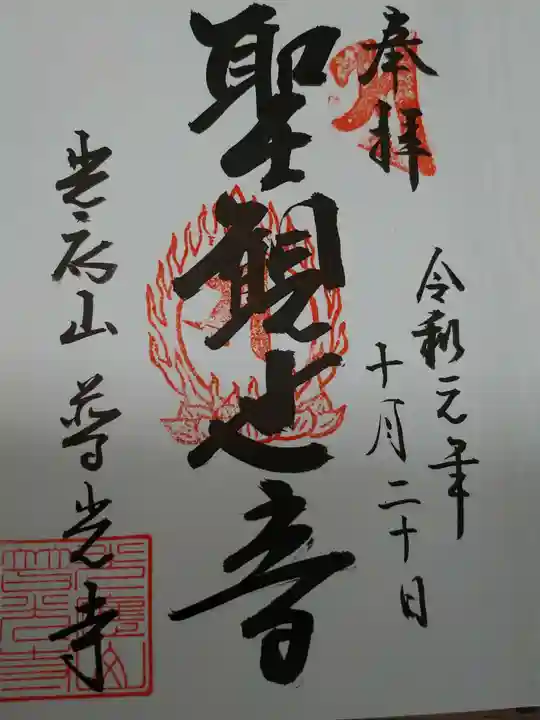 奉拝
令和元年
十月二十日
聖観世音
光應山 普光寺